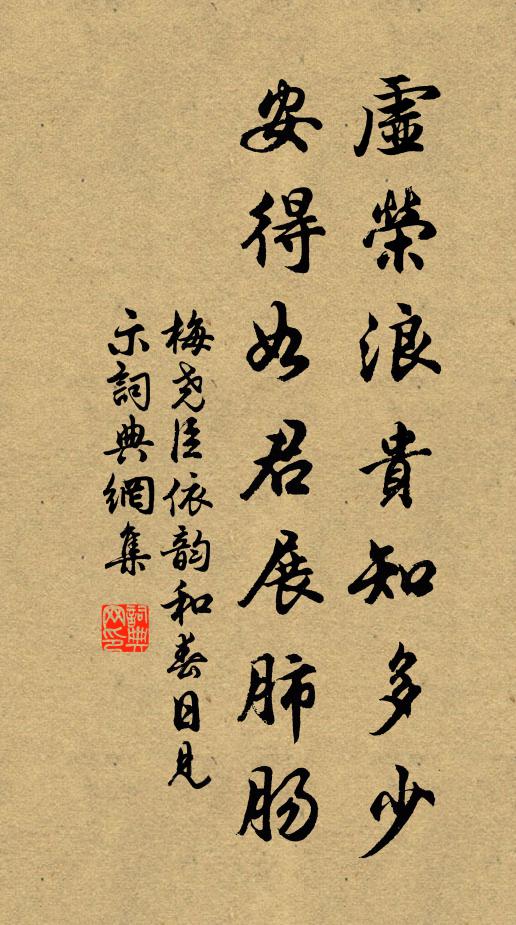 虛榮浪貴知多少
安得如君展肺腸
梅堯臣依韵和春日見
示詞典網集
詞典
网印